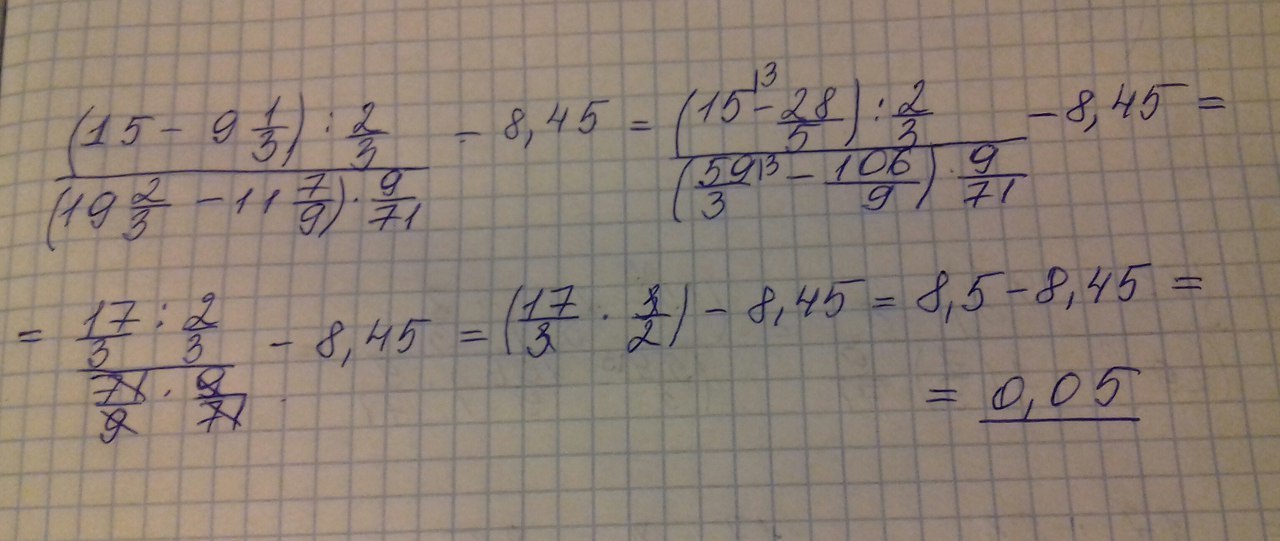 (15 - 9 1/3) : 2/3 / (19 2/3 - 11 7/9) · 9/71 - 8,45 = (15 ⌊3 - 28/5) : 2/3 / (59/3 ⌊3 - 106/9) · 9/71 - 8,45 =
= 17/3 : 2/3 / 71/9 · 9/71 - 8,45 = (17/3 · 3/2) - 8,45 = 8,5 - 8,45 =
= 0,05